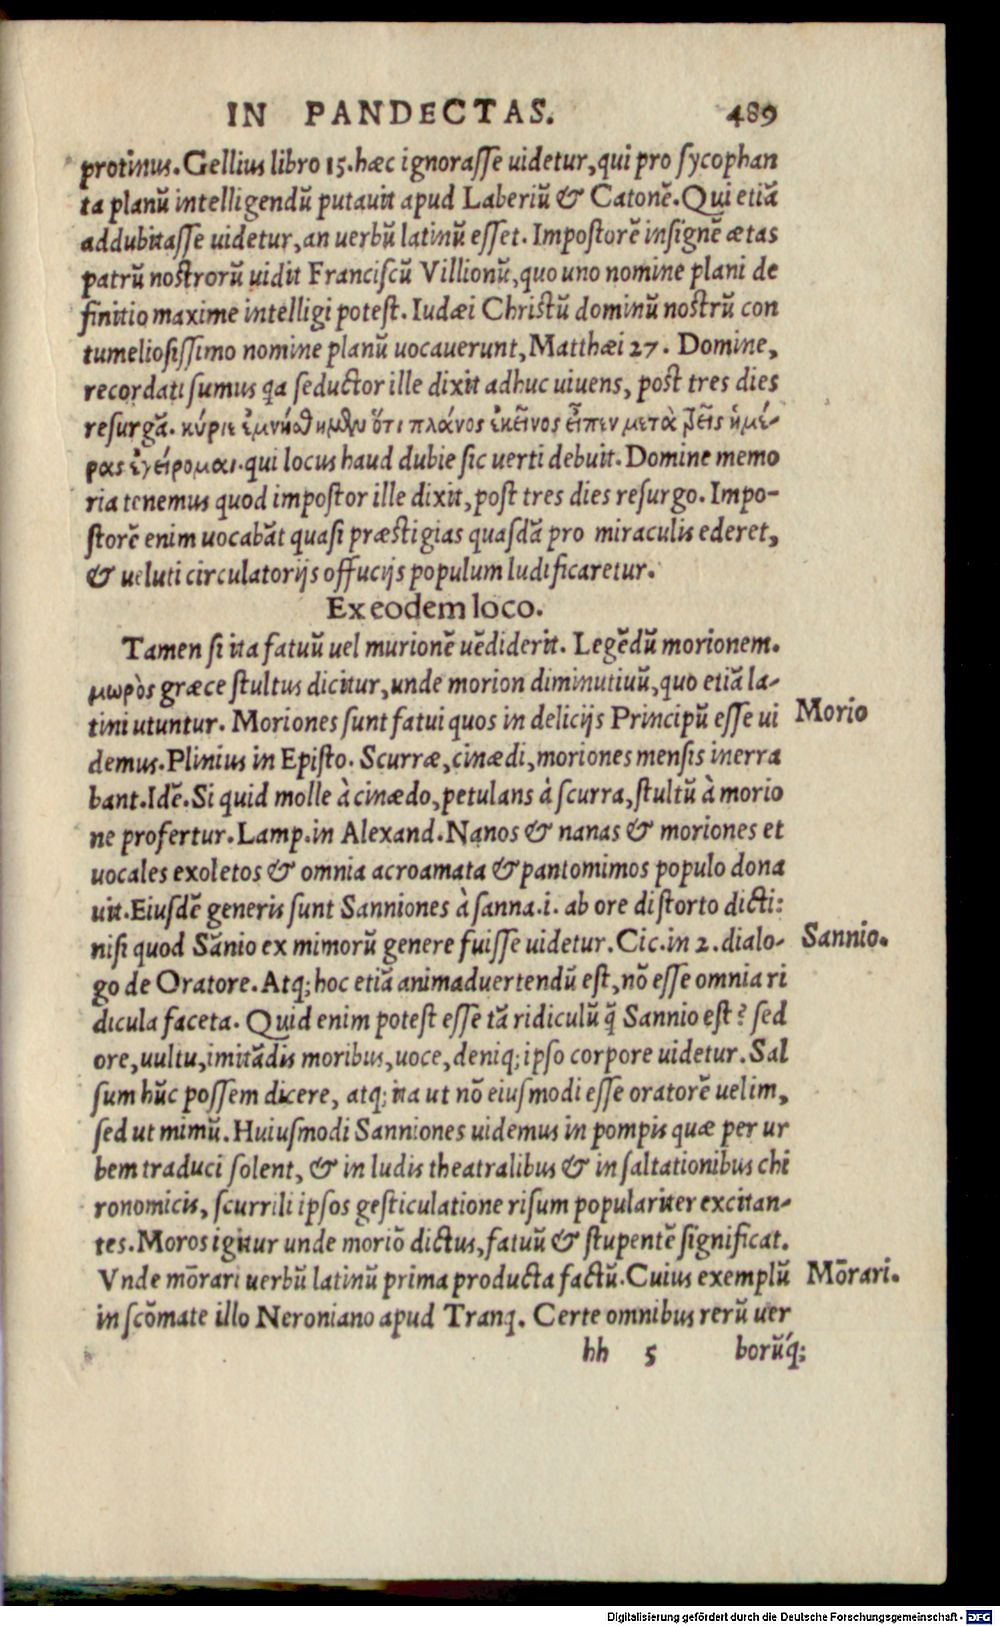 IN PANDECTAS. 489
protinus. Gellius libro 15. hæc ignorasse uidetur, qui pro sycophan
ta planũ intelligendũ putauit apud Laberiũ & Catonẽ. Qui etiã
addubitasse uidetur, an uerbũ latinũ esset. Impostorẽ insignẽ ætas
patrũ nostrorũ uidit Franciscũ Villionũ, quo uno nomine plani de
finitio maxime intelligi potest. Iudæi Christũ dominũ nostrũ con
tumeliosissimo nomine planũ uocauerunt, Matthæi 27. Domine,
recordati sumus qa seductor ille dixit adhuc uiuens, post tres dies
resurgã. κύριε ἐμνήσθημϑυ ὅτι πλάνος ἐκεῖνος εἶπεν μετὰ τρεῖς ἡμέ-
ρας ἐγείρομαι. qui locus haud dubie sic uerti debuit. Domine memo
ria tenemus quod impostor ille dixit, post tres dies resurgo. Impo-
storẽ enim uocabãt quasi præstigias quasdã pro miraculis ederet,
& ueluti circulatorijs offucijs populum ludificaretur.
Ex eodem loco.
Tamen si ita fatuũ uel murionẽ uẽdiderit. Legẽdũ morionem.
μωρὸς græce stultus dicitur, unde morion diminutiuũ, quo etiã la-
tini utuntur. Moriones sunt fatui quos in delicijs Principũ esse ui
Morio
demus. Plinius in Episto. Scurræ, cinædi, moriones mensis inerra
bant. Idẽ. Si quid molle à cinædo, petulans à scurra, stultũ à morio
ne profertur. Lamp. in Alexand. Nanos & nanas & moriones et
uocales exoletos & omnia acroamata & pantomimos populo dona
uit. Eiusdẽ generis sunt Sanniones à sanna .i. ab ore distorto dicti:
nisi quod Sãnio ex mimorũ genere fuisse uidetur. Cic. in 2. dialo-
Sannio.
go de Oratore. Atq; hoc etiã animaduertendũ est, nõ esse omnia ri
dicula faceta. Quid enim potest esse tã ridiculũ q̃ Sannio est? sed
ore, uultu, imitãdis moribus, uoce, deniq; ipso corpore uidetur. Sal
sum hũc possem dicere, atq; ita ut nõ eiusmodi esse oratorẽ uelim,
sed ut mimũ. Huiusmodi Sanniones uidemus in pompis quæ per ur
bem traduci solent, & in ludis theatralibus & in saltationibus chi
ronomicis, scurrili ipsos gesticulatione risum populariter excitan-
tes. Moros igitur unde moriõ dictus, fatuũ & stupentẽ significat.
Vnde mōrari uerbũ latinũ prima producta factũ. Cuius exemplũ
Mōrari.
in scõmate illo Neroniano apud Tranq. Certe omnibus rerũ uer
hh 5 borũq́;
Digitalisierung gefördert durch die Deutsche Forschungsgemeinschaft - DFG